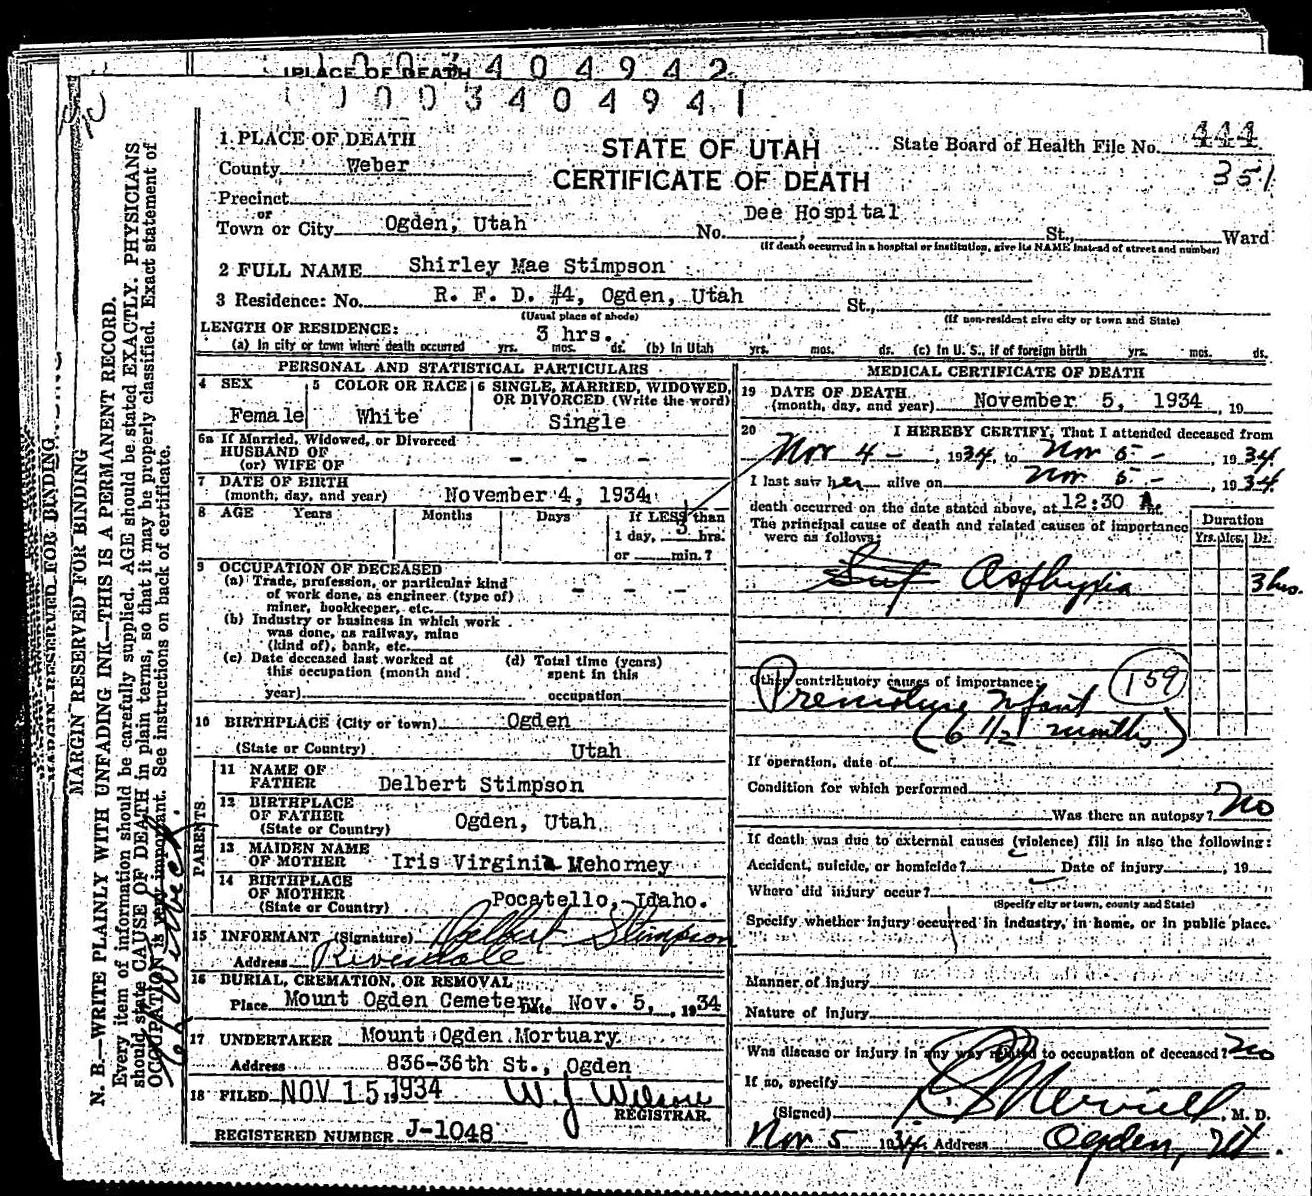 PLACE OF DEATH
1003404942
1003404941
1 PLACE OF DEATH
STATE OF UTAH
CERTIFICATE OF DEATH
State Board of Health File No. 444
351
County Weber
Precinct
or
Town or City Ogden, Utah No. Dee Hospital St., Ward
(If death occurred in a hospital or institution, give its NAME instead of street and number)
2 FULL NAME Shirley Mae Stimpson
3 Residence: No. R. F. D. #4, Ogden, Utah St.,
(Usual place of abode) (If non-resident give city or town and State)
LENGTH OF RESIDENCE: 3 hrs.
(a) In city or town where death occurred yrs. mos. ds. (b) In Utah yrs. mos. ds. (c) In U. S., if of foreign birth yrs. mos. ds.
PERSONAL AND STATISTICAL PARTICULARS
4 SEX 5 COLOR OR RACE 6 SINGLE, MARRIED, WIDOWED, OR DIVORCED (Write the word)
Female White Single
6a If Married, Widowed, or Divorced
HUSBAND OF
(or) WIFE OF - - -
7 DATE OF BIRTH
(month, day, and year) November 4, 1934
8 AGE Years Months Days If LESS than
1 day, 3 hrs.
or min.?
9 OCCUPATION OF DECEASED
(a) Trade, profession, or particular kind
of work done, as engineer (type of)
miner, bookkeeper, etc. - - -
(b) Industry or business in which work
was done, as railway, mine
(kind of), bank, etc.
(c) Date deceased last worked at
this occupation (month and
year)
(d) Total time (years)
spent in this
occupation
10 BIRTHPLACE (City or town) Ogden
(State or Country) Utah
PARENTS
11 NAME OF
FATHER Delbert Stimpson
12 BIRTHPLACE
OF FATHER Ogden, Utah
(State or Country)
13 MAIDEN NAME
OF MOTHER Iris Virginia Mehorney
14 BIRTHPLACE
OF MOTHER
(State or Country) Pocatello, Idaho.
15 INFORMANT (Signature) Delbert Stimpson
Address Riverdale
16 BURIAL, CREMATION, OR REMOVAL
Place Mount Ogden Cemetery Date Nov. 5, , 1934
17 UNDERTAKER Mount Ogden Mortuary
Address 836-36th St., Ogden
18 FILED NOV 15 1934 W. J. Wilson
REGISTRAR.
REGISTERED NUMBER J-1048
MEDICAL CERTIFICATE OF DEATH
19 DATE OF DEATH
(month, day, and year) November 5, 1934 , 19
20 I HEREBY CERTIFY, That I attended deceased from
Nov 4 - , 1934, to Nov 5 - , 1934.
I last saw her alive on Nov 5 - , 1934.
death occurred on the date stated above, at 12:30 A m.
The principal cause of death and related causes of importance
were as follows:
Duration
Yrs. Mos. Ds.
Asphyxia 3 hrs.
Other contributory causes of importance:
159
Premature Infant
(6 1/2 months)
If operation, date of
Condition for which performed
Was there an autopsy? No
If death was due to external causes (violence) fill in also the following:
Accident, suicide, or homicide? Date of injury , 19
Where did injury occur?
(Specify city or town, county and State)
Specify whether injury occurred in industry, in home, or in public place.
Manner of injury
Nature of injury
Was disease or injury in any way related to occupation of deceased? No
If so, specify
(Signed) Merrill, M. D.
Nov 5 1934 Address Ogden, Ut.
MARGIN RESERVED FOR BINDING
MARGIN RESERVED FOR BINDING
N. B.—WRITE PLAINLY WITH UNFADING INK—THIS IS A PERMANENT RECORD.
Every item of information should be carefully supplied. AGE should be stated EXACTLY. PHYSICIANS
should state CAUSE OF DEATH in plain terms, so that it may be properly classified. Exact statement of
OCCUPATION is very important. See instructions on back of certificate.